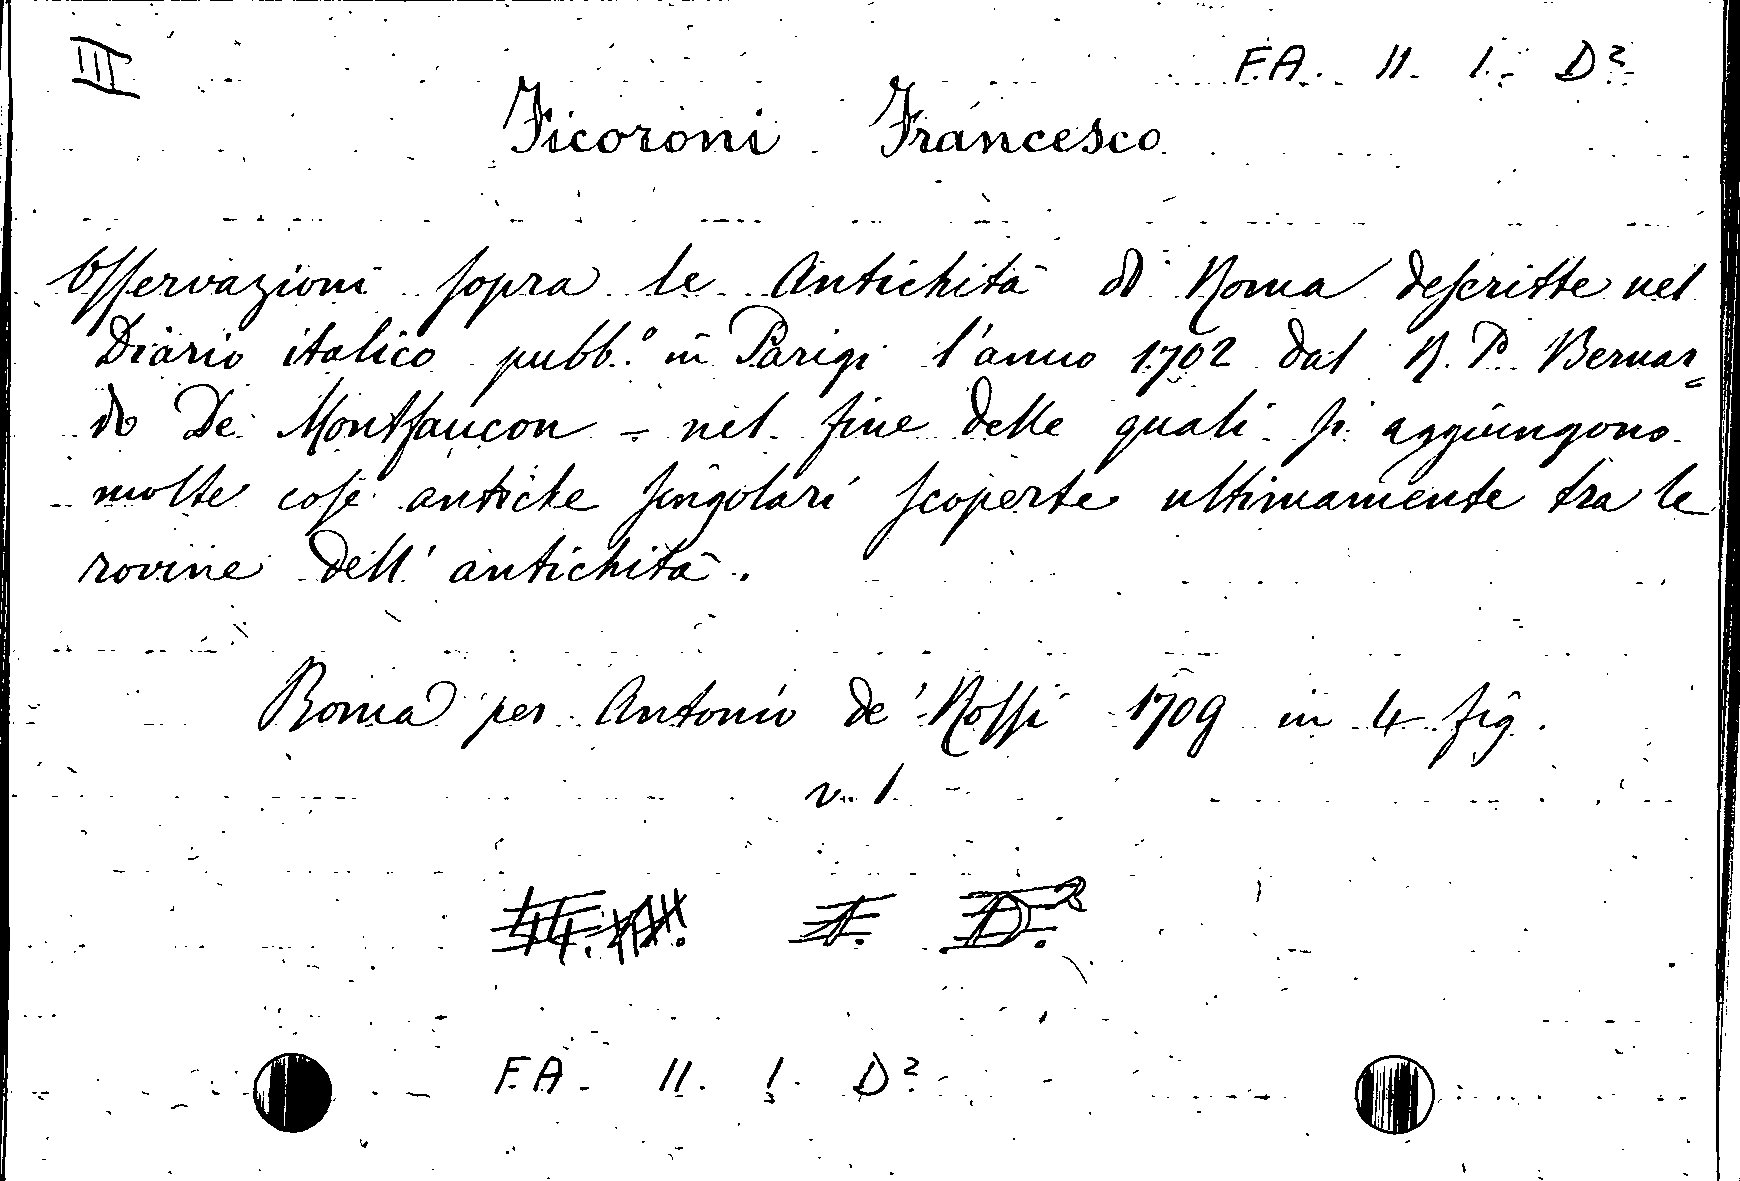 III
F.A. II. I. D²
Ficoroni Francesco
Osservazioni sopra le Antichità di Roma descritte nel
Diario italico pubb.° in Parigi l'anno 1702 dal R. P. Bernar=
do De Montfaucon - nel fine delle quali si aggiungono
molte cose antiche singolari scoperte ultimamente tra le
rovine dell' antichità.
Roma per Antonio de' Rossi 1709 in 4 fig.
v. 1.
I. D.²
F.A. II. I. D²